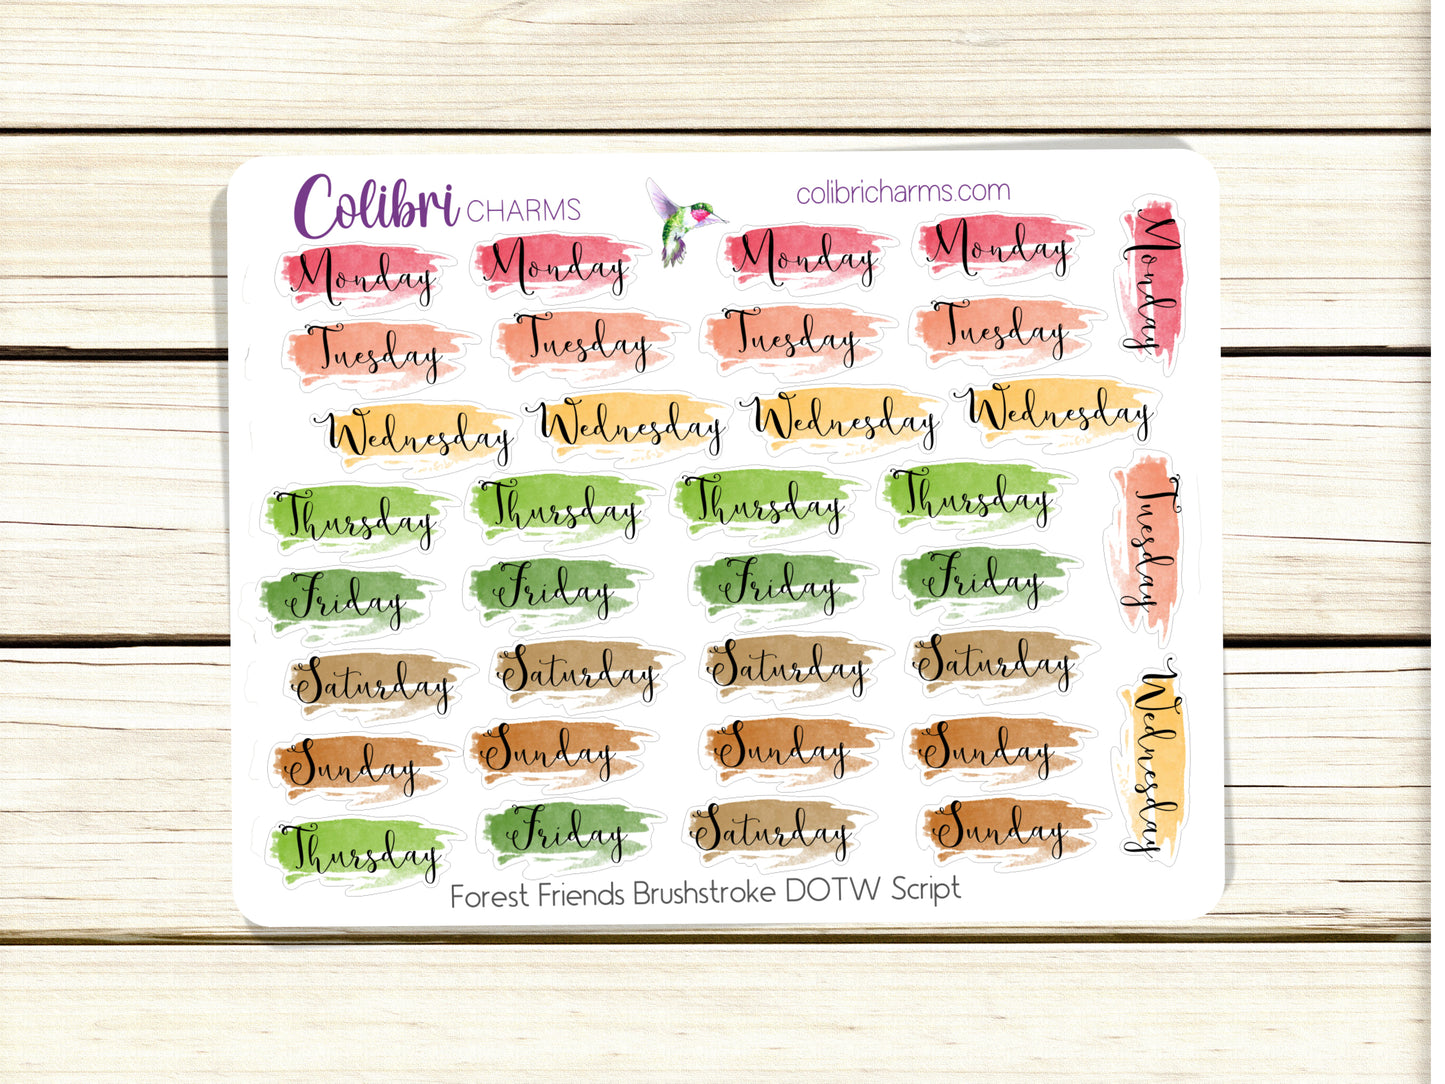 Colibri CHARMS
colibricharms.com
Monday Monday Monday Monday
Monday
Tuesday Tuesday Tuesday Tuesday
Wednesday Wednesday Wednesday Wednesday
Thursday Thursday Thursday Thursday
Tuesday
Friday Friday Friday Friday
Saturday Saturday Saturday Saturday
Sunday Sunday Sunday Sunday
Wednesday
Thursday Friday Saturday Sunday
Forest Friends Brushstroke DOTW Script